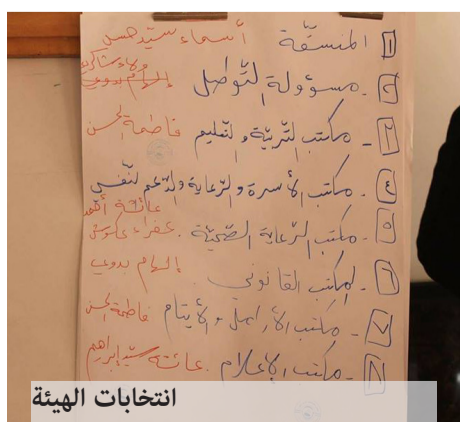 ١ المنسقة أسماء سيد حسن
٢ - مسؤولة التواصل إلهام بدوي
٣ - مكتب التربية والتعليم فاطمة الحسن
٤ - مكتب الأسرة والرعاية والدعم النفسي
عائشة
٥ - مكتب الرعاية الصحية عفراء
٦ - المكتب القانوني إلهام بدوي
٧ - مكتب الأرامل والأيتام فاطمة الحسن
٨ - مكتب الإعلام عائشة سيد إبراهيم
انتخابات الهيئة